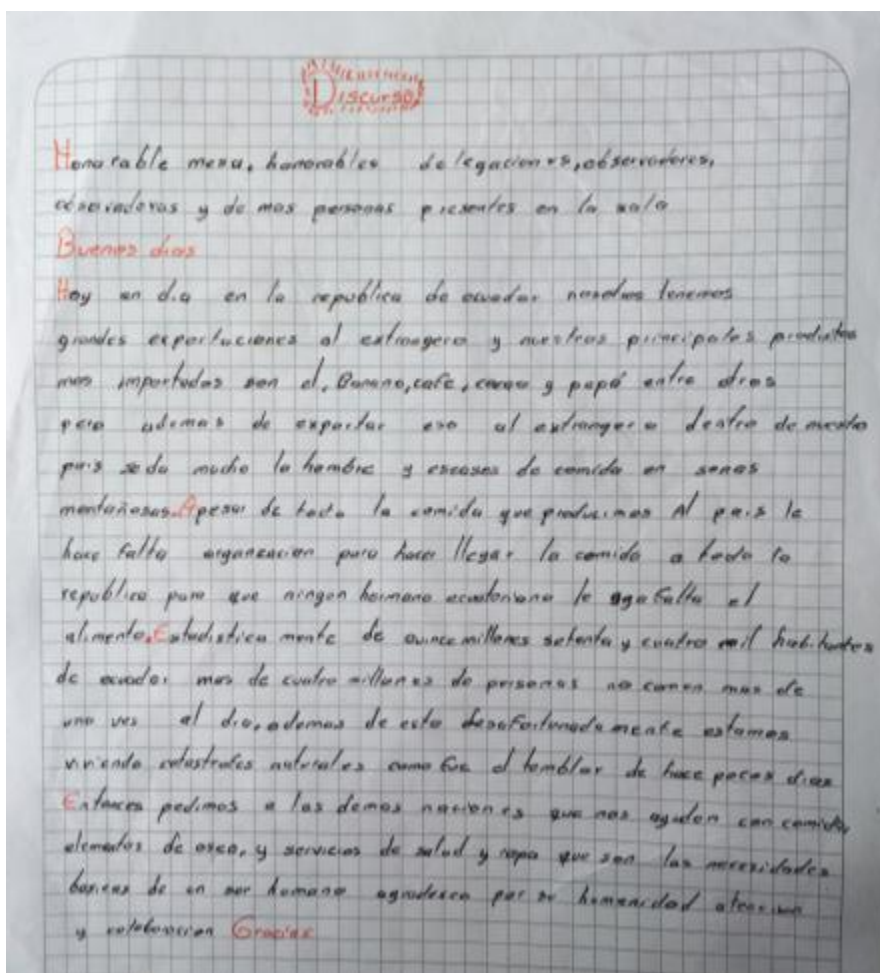 Discurso
Honorable mesa, honorables delegaciones, observadores,
observadoras y de mas personas presentes en la sala
Buenos dias
Hoy en dia en la republica de ecuador nosotros tenemos
grandes exportaciones al extrangero y nuestros principales productos
mas importados son el, Banano, cafe, cacao y papa entre otros
pero ademas de exportar eso al extrangero dentro de nuestro
pais se da mucho la hambre y escases de comida en sonas
montañosas. Apesar de toda la comida que producimos Al pais le
hace falta organizacion para hacer llegar la comida a toda la
republica para que ningun hermano ecuatoriano le aga falta el
alimento. Estadistica mente de quince millones setenta y cuatro mil habitantes
de ecuador mas de cuatro millones de personas no comen mas de
una ves al dia, ademas de esto desafortunadamente estamos
viviendo catastrofes naturales como fue el temblor de hace pocos dias
Entonces pedimos a las demas naciones que nos ayuden con comida,
elementos de aseo, y servicios de salud y ropa que son las necesidades
basicas de un ser humano agradesco por su humanidad atencion
y colaboracion Gracias